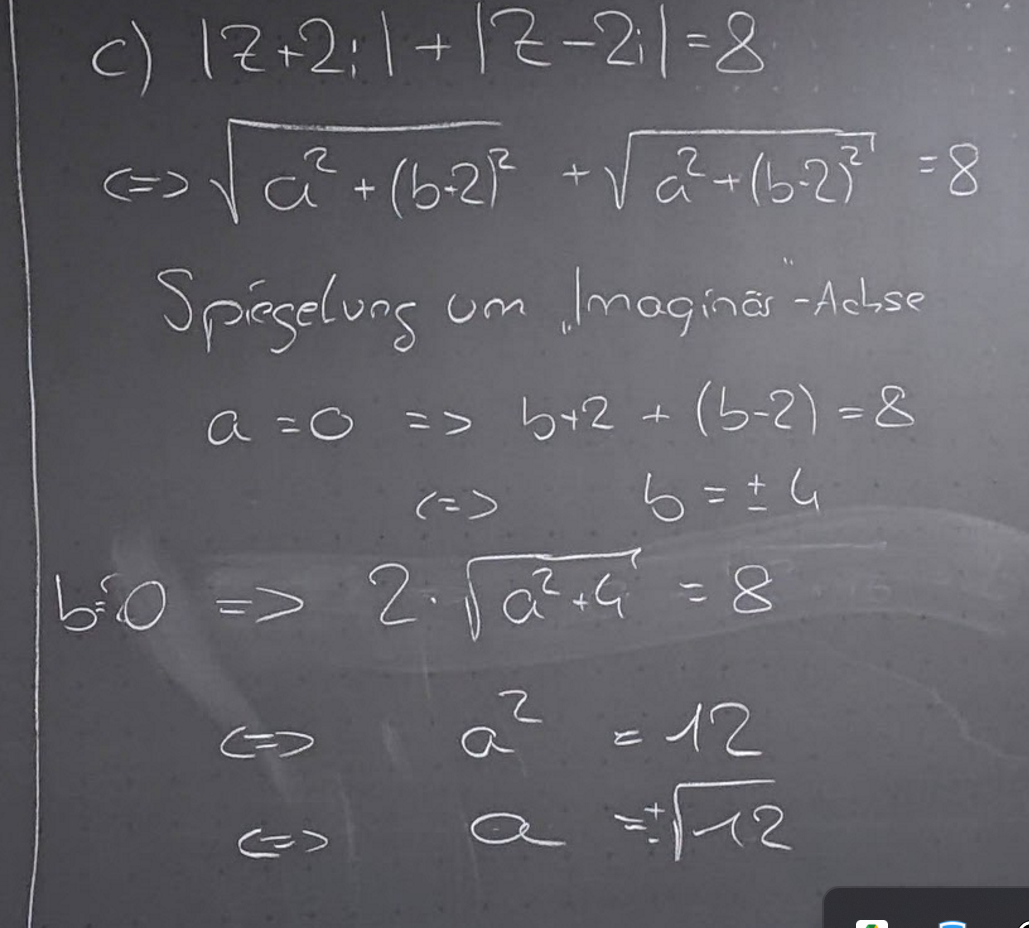 c) |z+2i| + |z-2i| = 8
<=> √(a² + (b-2)²) + √(a² + (b-2)²) = 8
Spiegelung um „Imaginär“-Achse
a = 0 => b+2 + (b-2) = 8
<=> b = ± 4
b=0 => 2·√(a²+4) = 8
<=> a² = 12
<=> a = ±√12